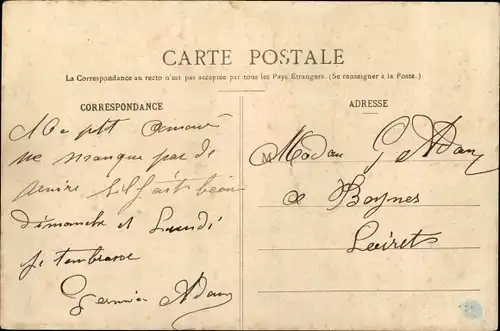 CARTE POSTALE
La Correspondance au recto n'est pas acceptée par tous les Pays Étrangers. (Se renseigner à la Poste.)
CORRESPONDANCE
Me ptit Amour
ne manque pas de
venire sil fait beau
dimanche et Lundi
je tembrasse
Germin Adam
ADRESSE
Madam G Adam
a Boynes
Loiret